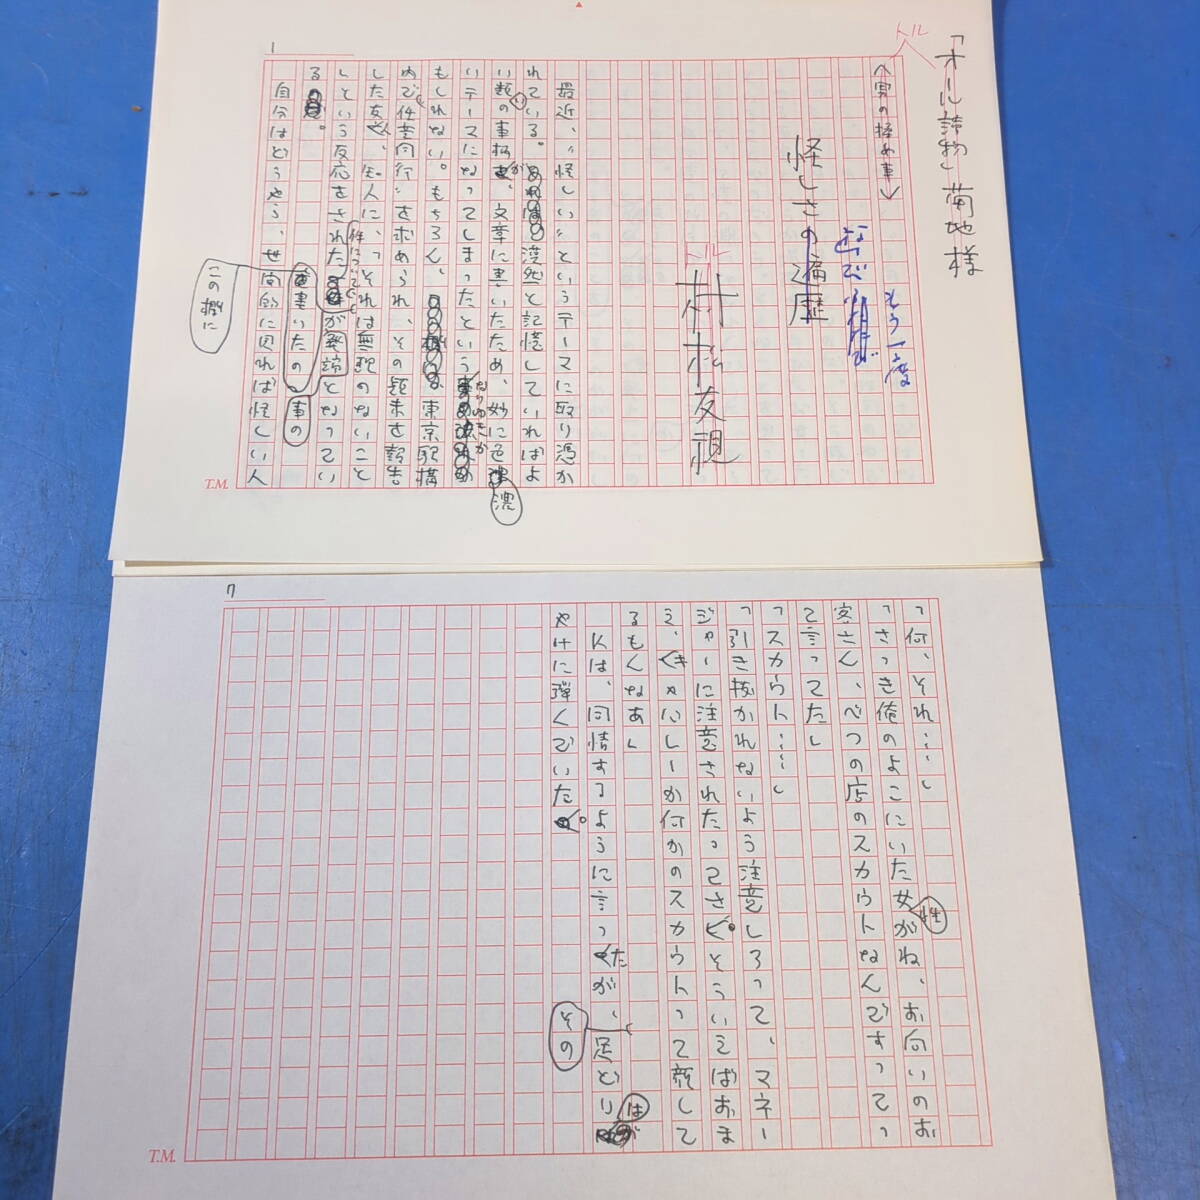 「オール読物」菊地様
トル
〈寅の極め書〉
もう一度
怪しさの遍歴
トル
村松友視
1
最近、〝怪しい〟というテーマに取り憑か
れている。漠然と記憶していればよ
い類の事柄が、文章に書いたため、妙に色濃
いテーマになってしまったという
なりゆきか
もしれない。もちろん、東京駅構
内で〝任意同行〟を求められ、その顛末を報告
した友人、知人に、それは無理のないこと
件について
しという反応をされたが発端となってい
る。
この欄に
書いたの
事の
自分はどうやら、世間的に図れば怪しい人
T.M.
7
「何、それ……」
「さっき俺のよこにいた女性がね、お向いのお
客さん、べつの店のスカウトなんですってっ
て言ってた」
「スカウト……」
「引き抜かれないよう注意しろって、マネー
ジャーに注意されたってさ。そういえばおま
え、キャバレーか何かのスカウトって顔して
るもんなあ」
Kは、同情するように言ったが、その足どりは
やけに弾んでいた。
T.M.